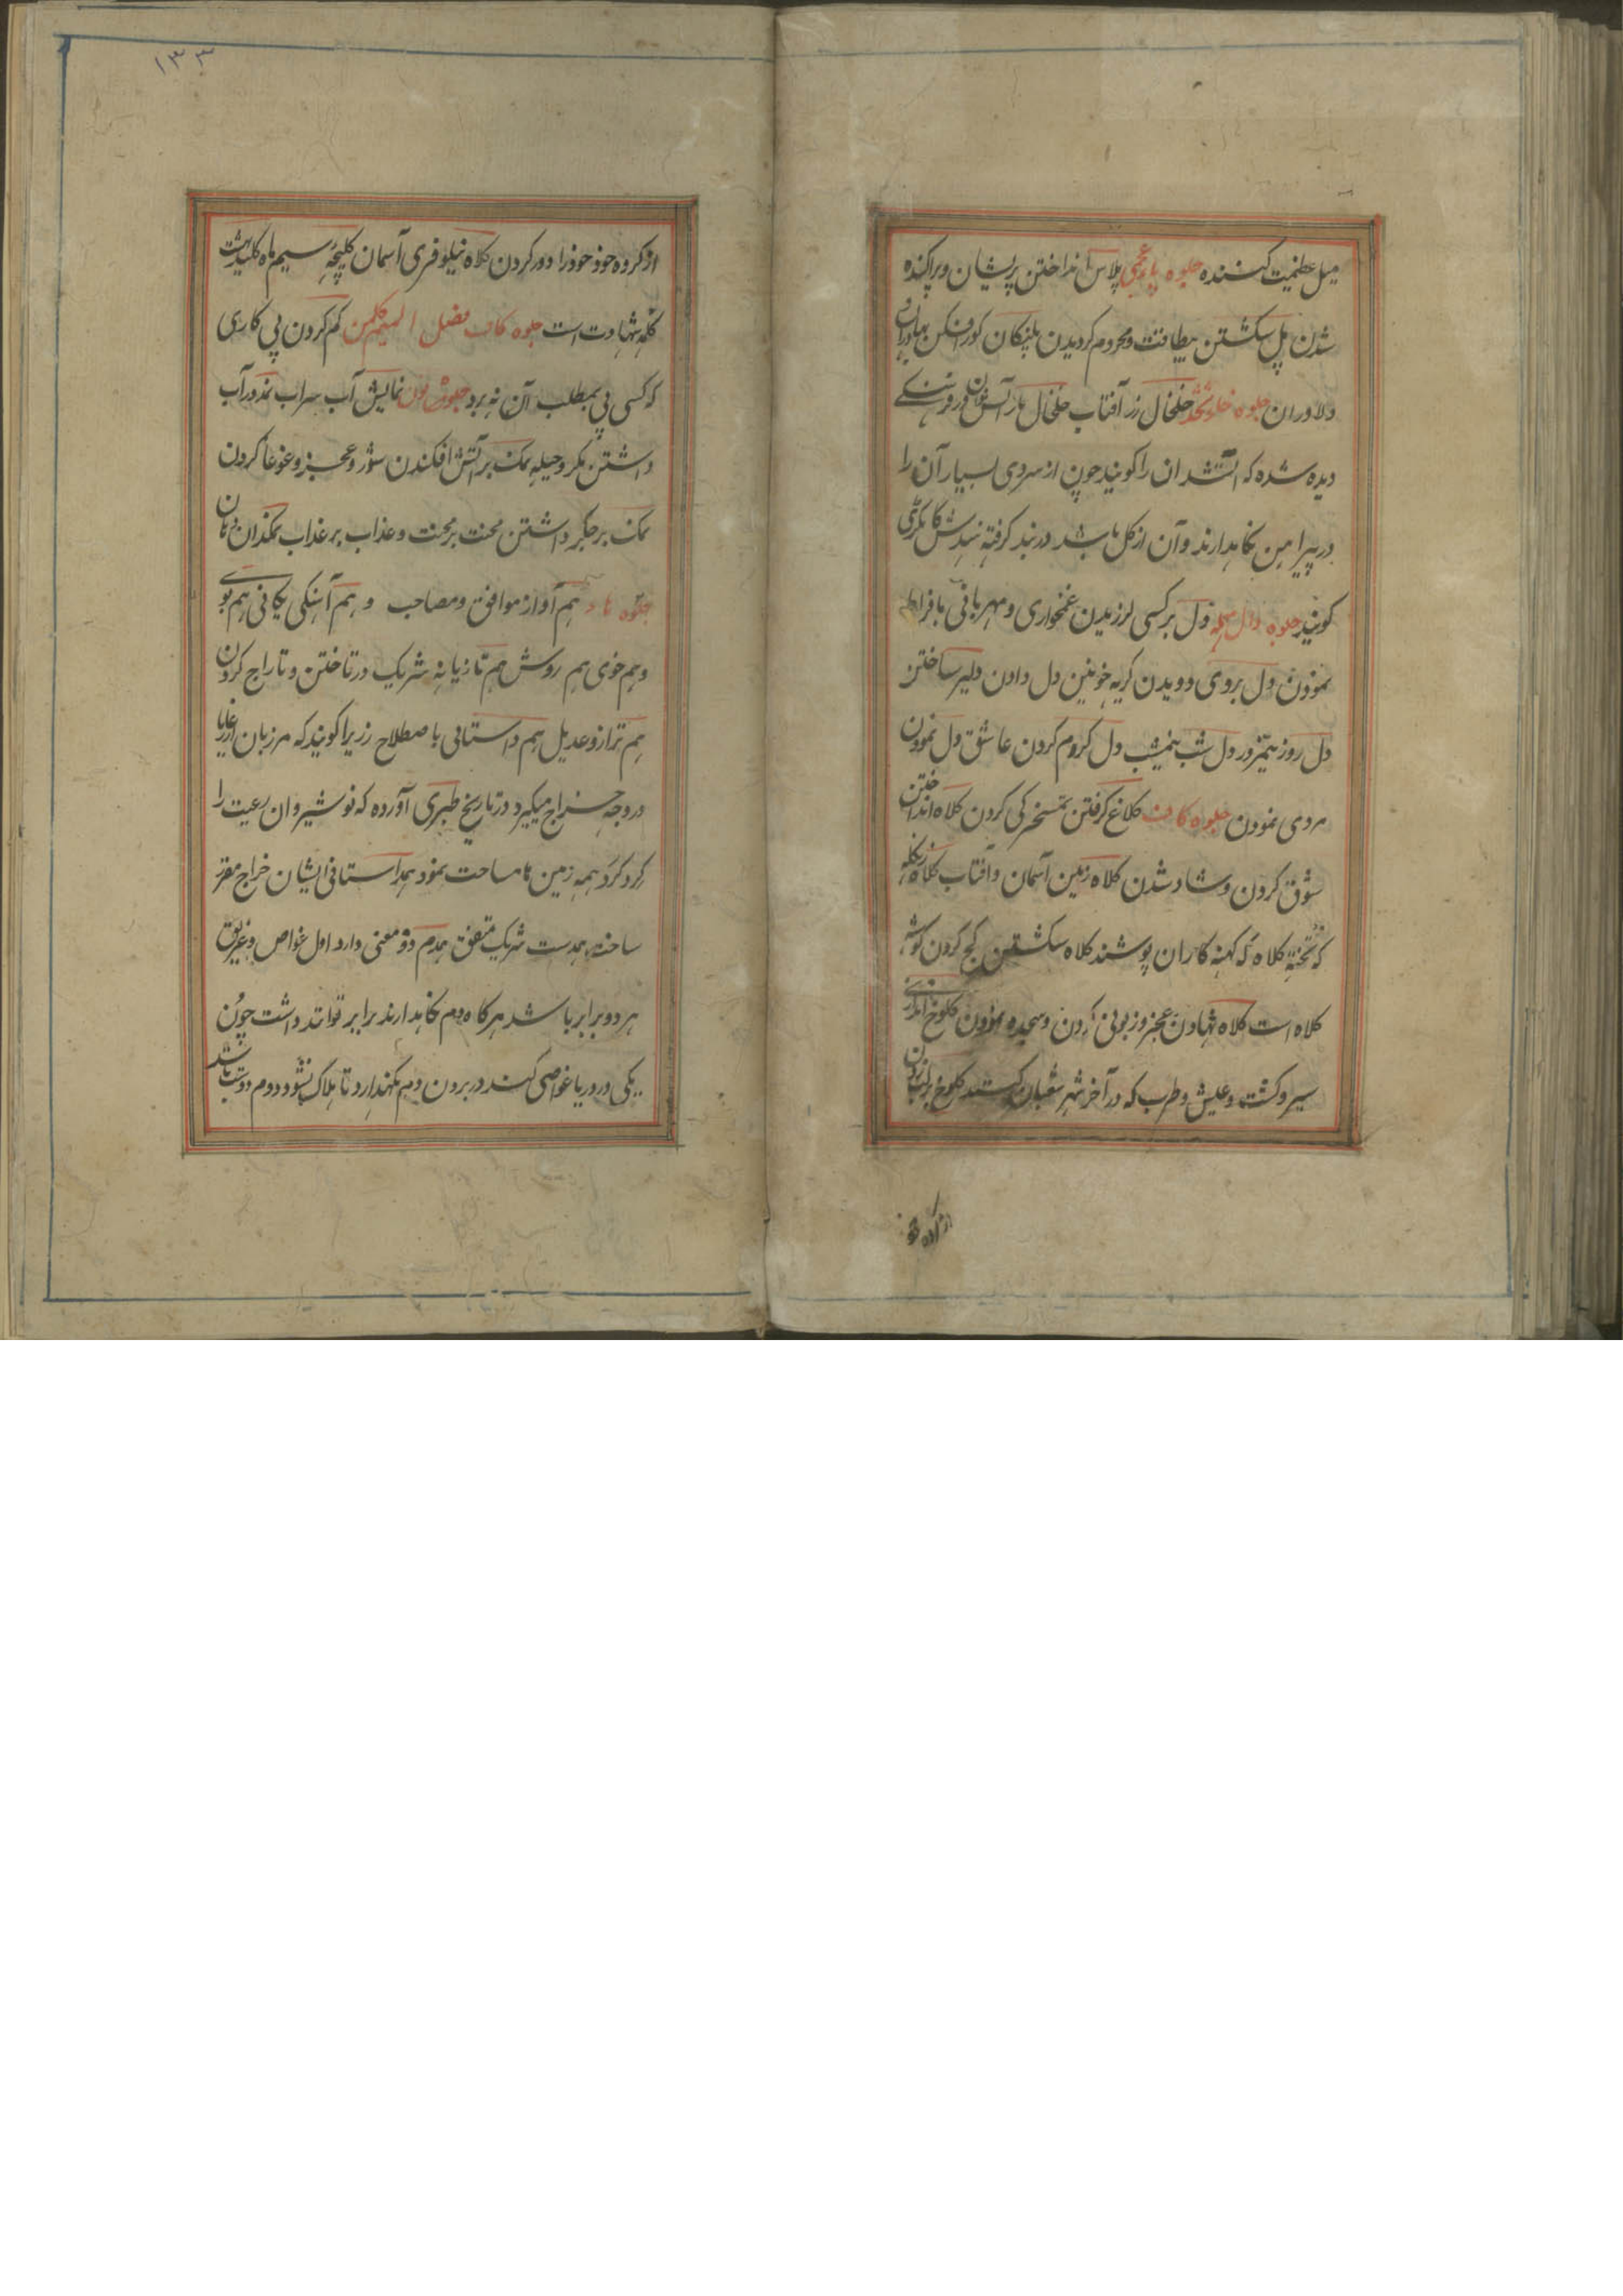 میل عظیمت کننده جلوه باء عجمی پلاس انداختن پریشان و پراکنده
شدن پل شکستن بیطاقت و محروم کردیدن پلنکان کور افکن بهادران
و دلاوران جلوه خاء ثخذ خلخال زر آفتاب خلخال در فرهنگی
دیده شده که آتشدان را کویند چون از سردی بسیار آن را
در پیراهن نکاهدارند و آن از کل باشد در بند کرفته
کویند جلوه دال مهمله دل بر کسی لرزیدن غمخواری و مهربانی بافراط
نمودن دل بروی دویدن کریه خونین دل دادن دلیر ساختن
دل روز نیمروز دل شب نیمشب دل کروم کردن عاشق دل نمودن
مردی نمودن جلوه کاف کلاغ کرفتن تمسخرکی کردن کلاه انداختن
شوق کردن و شاد شدن کلاه زمین آسمان و آفتاب کلاه
که کلاه که کهنه کاران پوشند کلاه شکستن کج کردن کوشه
کلاه است کلاه نهادن عجز و زبونی کردن و سجده نمودن کلوخ اندازی
سیر و کشت و عیش و طرب که در آخر شهر شعبان کنند کلوخ بر لب زدن
۱۳۳
از کرده خود خود را دور کردن کلاه نیلوفری آسمان کلیچه سیم ماه کلید بهشت
کلمه شهادت است جلوه کاف فصل المیم کلمن کم کردن پی کاری
که کسی پی بمطلب آن نه برد جلوه نون نمایش آب سراب نمد در آب
داشتن مکر و حیله نمک بر آتش افکندن شور و عجز و غوغا کردن
نمک بر جکر داشتن محنت بر محنت و عذاب بر عذاب نمکدان دهان
جلوه هاء هم آواز موافق و مصاحب و هم آهنکی یکانی هم بوی
و هم خوی هم روش هم تازیانه شریک در تاختن و تاراج کردن
هم ترازو عدیل هم داستانی باصطلاح زریرا کویند که مرزبان از رعایا
در وجه خراج میکیرد در تاریخ طبری آورده که نوشیروان رعیت را
کرد کرد همه زمین ها مساحت نمود بهمداستانی ایشان خراج مقرر
ساخت همدست شریک متفق همدم دو معنی دارد اول غواص و غریق
هر دو برابر باشد هرکاه دم نکاهدارند برابر توانند داشت چون
یکی در دریا غواصی کند در برون دم نکهدارد تا هلاک نشود دوم دوست باشد